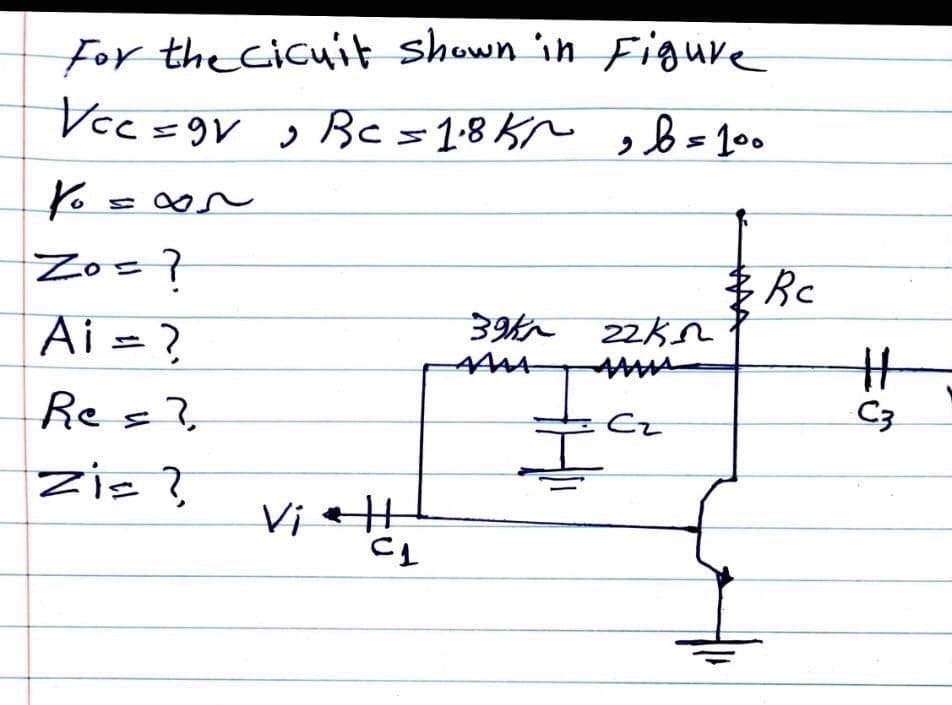 For the cicuit shown in Figure
Vcc = 9V , Rc = 1.8 KΩ , β = 100
ro = ∞Ω
Zo = ?
Ai = ?
Re = ?
Zi = ?
Rc
39KΩ 22KΩ
C3
C2
Vi
C1